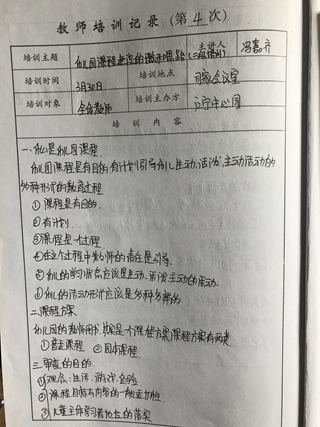 教师培训记录(第4次)
培训主题 幼儿园课程建设的 主讲人 冯
培训时间 3月30日 培训地点 会议室
培训对象 全体教师 培训主办方 中心园
培训内容
一、什么是幼儿园课程
幼儿园课程是有目的、有计划引导幼儿生动、活泼、主动活动的
多种形式的教育过程
①课程是有目的
②有计划
③课程是一过程
④在这个过程中教师的责任是引导
⑤幼儿的学习状态应该是生动、活泼、主动的活动
⑥幼儿的活动形式应该是多种多样的
二、课程方案
幼儿园的教师用书,就是一个课程方案,课程方案有两类
①蓝本课程 ②园本课程
三、审查的目的
①观念:生活、游戏、经验
②课程目标与内容的一致
③儿童主体学习者地位的落实